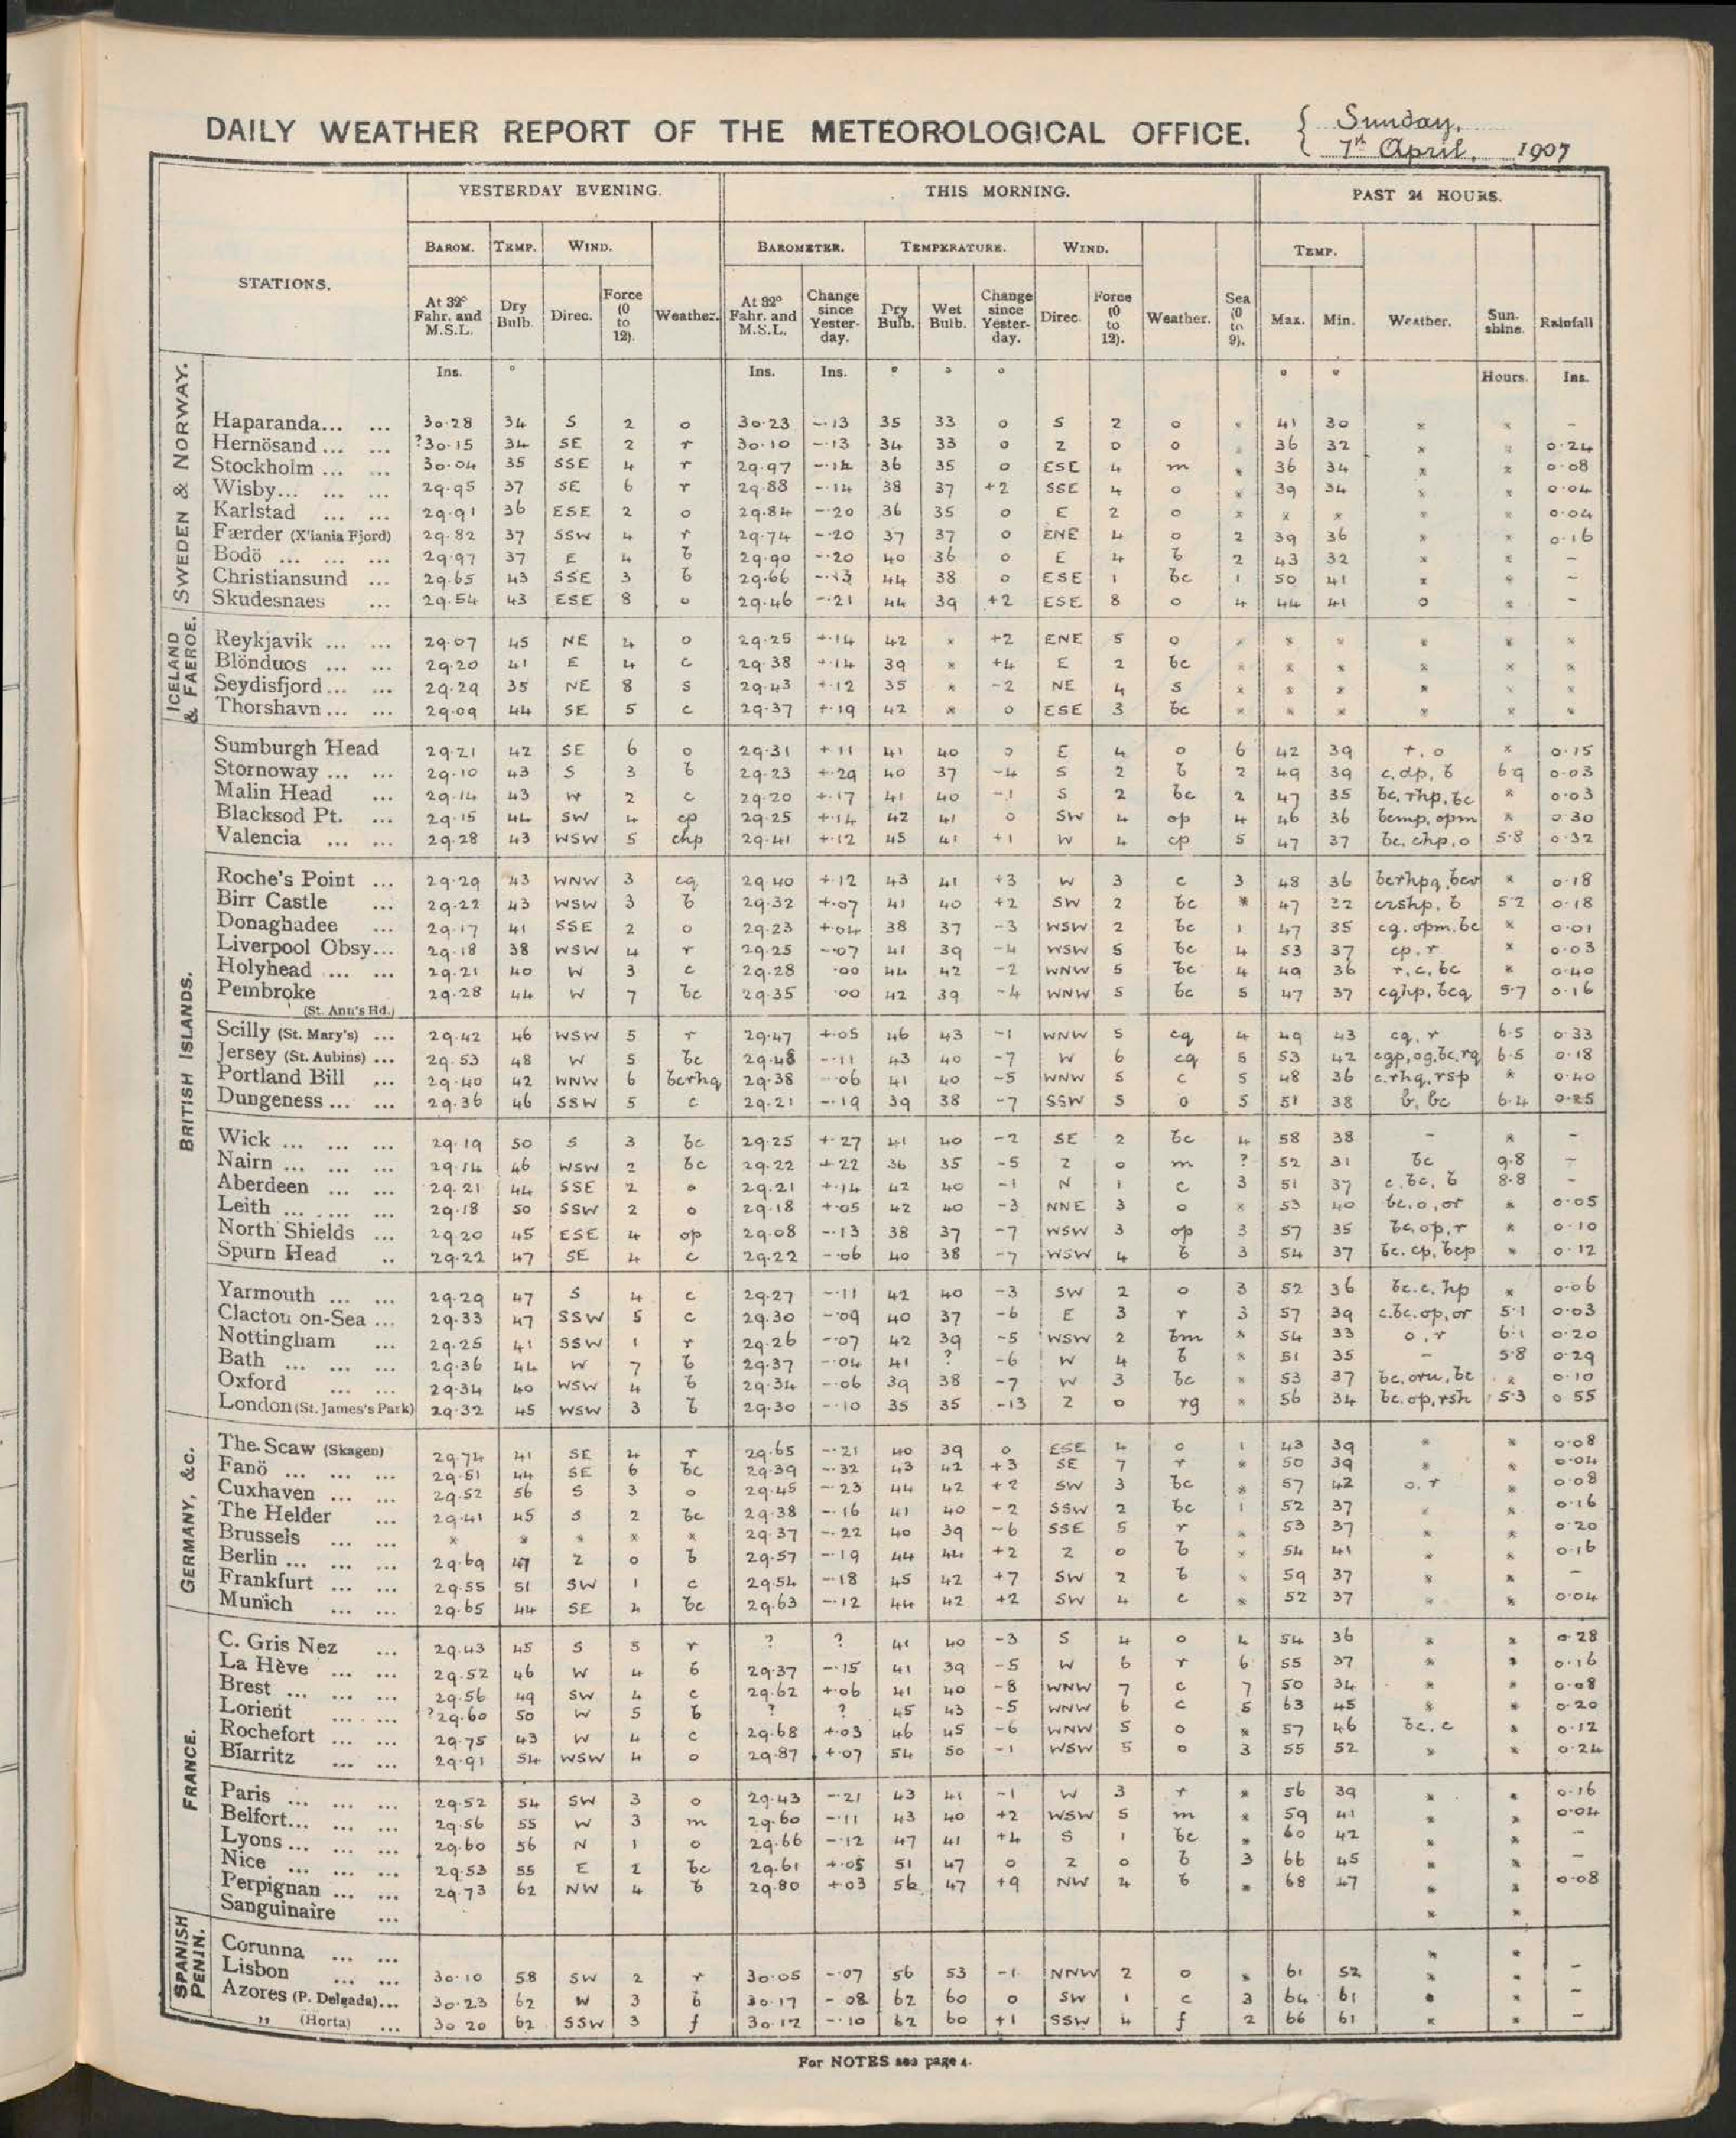 DAILY WEATHER REPORT OF THE METEOROLOGICAL OFFICE. Sunday, 7th April, 1907
YESTERDAY EVENING. THIS MORNING. PAST 24 HOURS.
BAROM. TEMP. WIND. BAROMETER. TEMPERATURE. WIND. TEMP.
STATIONS. At 32° Fahr. and M.S.L. Dry Bulb. Direc. Force (0 to 12). Weather. At 32° Fahr. and M.S.L. Change since Yesterday. Dry Bulb. Wet Bulb. Change since Yesterday. Direc. Force (0 to 12). Weather. Sea (0 to 9). Max. Min. Weather. Sunshine. Rainfall
Ins. ° Ins. Ins. ° ° ° ° ° Hours. Ins.
SWEDEN & NORWAY.
Haparanda... ... 30.28 34 S 2 o 30.23 -.13 35 33 0 S 2 o * 41 30 * * -
Hernösand ... ... ?30.15 34 SE 2 r 30.10 -.13 34 33 0 Z 0 o * 36 32 * * 0.24
Stockholm ... ... 30.04 35 SSE 4 r 29.97 -.14 36 35 0 ESE 4 m * 36 34 * * 0.08
Wisby... ... ... 29.95 37 SE 6 r 29.88 -.14 38 37 +2 SSE 4 o * 39 34 * * 0.04
Karlstad ... ... 29.91 36 ESE 2 o 29.84 -.20 36 35 0 E 2 o * * * * * 0.04
Færder (X'iania Fjord) 29.82 37 SSW 4 r 29.74 -.20 37 37 0 ENE 4 o 2 39 36 * * 0.16
Bodö ... ... ... 29.97 37 E 4 b 29.90 -.20 40 36 0 E 4 b 2 43 32 * * -
Christiansund ... 29.65 43 SSE 3 b 29.66 -.13 44 38 0 ESE 1 bc 1 50 41 * * -
Skudesnaes ... 29.54 43 ESE 8 o 29.46 -.21 44 39 +2 ESE 8 o 4 44 41 o * -
ICELAND & FAEROE.
Reykjavik ... ... 29.07 45 NE 4 o 29.25 +.14 42 * +2 ENE 5 o * * * * * *
Blönduos ... ... 29.20 41 E 4 c 29.38 +.14 39 * +4 E 2 bc * * * * * *
Seydisfjord ... ... 29.29 35 NE 8 s 29.43 +.12 35 * -2 NE 4 s * * * * * *
Thorshavn ... ... 29.09 44 SE 5 c 29.37 +.19 42 * 0 ESE 3 bc * * * * * *
BRITISH ISLANDS.
Sumburgh Head 29.21 42 SE 6 o 29.31 +.11 41 40 0 E 4 o 6 42 39 r.o * 0.15
Stornoway ... ... 29.10 43 S 3 b 29.23 +.29 40 37 -4 S 2 b 2 49 39 c,dp,b 6.9 0.03
Malin Head ... 29.14 43 W 2 c 29.20 +.17 41 40 -1 S 2 bc 2 47 35 bc,rhp,bc * 0.03
Blacksod Pt. ... 29.15 44 SW 4 cp 29.25 +.14 42 41 0 SW 4 op 4 46 36 bcmp, opm * 0.30
Valencia ... ... 29.28 43 WSW 5 chp 29.41 +.12 45 41 +1 W 4 cp 5 47 37 bc, chp, o 5.8 0.32
Roche's Point ... 29.29 43 WNW 3 cq 29.40 +.12 43 41 +3 W 3 c 3 48 36 bcrhpq, bcv * 0.18
Birr Castle ... 29.22 43 WSW 3 b 29.32 +.07 41 40 +2 SW 2 bc * 47 32 crshp, b 5.2 0.18
Donaghadee ... 29.17 41 SSE 2 o 29.23 +.04 38 37 -3 WSW 2 bc 1 47 35 cg, opm, bc * 0.01
Liverpool Obsy... 29.18 38 WSW 4 r 29.25 -.07 41 39 -4 WSW 5 bc 4 53 37 cp, r * 0.03
Holyhead ... ... 29.21 40 W 3 c 29.28 .00 44 42 -2 WNW 5 bc 4 49 36 r, c, bc * 0.40
Pembroke (St. Ann's Hd.) 29.28 44 W 7 bc 29.35 .00 42 39 -4 WNW 5 bc 5 47 37 cqhp, bcq 5.7 0.16
Scilly (St. Mary's) ... 29.42 46 WSW 5 r 29.47 +.05 46 43 -1 WNW 5 cq 4 49 43 cq, r 6.5 0.33
Jersey (St. Aubins) ... 29.53 48 W 5 bc 29.48 -.11 43 40 -7 W 6 cq 5 53 42 cgp,og,bc,rq 6.5 0.18
Portland Bill ... 29.40 42 WNW 6 bcrhq 29.38 -.06 41 40 -5 WNW 5 c 5 48 36 c.rhq, rsp * 0.40
Dungeness ... ... 29.36 46 SSW 5 c 29.21 -.19 39 38 -7 SSW 5 o 5 51 38 b, bc 6.4 0.25
Wick ... ... ... 29.19 50 S 3 bc 29.25 +.27 41 40 -2 SE 2 bc 4 58 38 - * -
Nairn ... ... ... 29.14 46 WSW 2 bc 29.22 +.22 36 35 -5 Z 0 m ? 52 31 bc 9.8 -
Aberdeen ... ... 29.21 44 SSE 2 o 29.21 +.14 42 40 -1 N 1 c 3 51 37 c, bc, b 8.8 -
Leith ... ... ... 29.18 50 SSW 2 o 29.18 +.05 42 40 -3 NNE 3 o * 53 40 bc, o, or * 0.05
North Shields ... 29.20 45 ESE 4 op 29.08 -.13 38 37 -7 WSW 3 op 3 57 35 bc, op, r * 0.10
Spurn Head .. 29.22 47 SE 4 c 29.22 -.06 40 38 -7 WSW 4 b 3 54 37 bc, cp, bcp * 0.12
Yarmouth ... ... 29.29 47 S 4 c 29.27 -.11 42 40 -3 SW 2 o 3 52 36 bc.c, hp * 0.06
Clacton on-Sea ... 29.33 47 SSW 5 c 29.30 -.09 40 37 -6 E 3 r 3 57 39 c.bc.op, or 5.1 0.03
Nottingham ... 29.25 41 SSW 1 r 29.26 -.07 42 39 -5 WSW 2 bm * 54 33 o, r 6.1 0.20
Bath ... ... ... 29.36 44 W 7 b 29.37 -.04 41 ? -6 W 4 b * 51 35 - 5.8 0.29
Oxford ... ... 29.34 40 WSW 4 b 29.34 -.06 39 38 -7 W 3 bc * 53 37 bc, oru, bc * 0.10
London (St. James's Park) 29.32 45 WSW 3 b 29.30 -.10 35 35 -13 Z 0 rg * 56 34 bc, op, rsh 5.3 0.55
GERMANY, &c.
The Scaw (Skagen) 29.74 41 SE 4 r 29.65 -.21 40 39 0 ESE 4 o 1 43 39 * * 0.08
Fanö ... ... ... 29.51 44 SE 6 bc 29.39 -.32 43 42 +3 SE 7 r * 50 39 * * 0.04
Cuxhaven ... ... 29.52 56 S 3 o 29.45 -.23 44 42 +2 SW 3 bc * 57 42 o, r * 0.08
The Helder ... 29.41 45 S 2 bc 29.38 -.16 41 40 -2 SSW 2 bc 1 52 37 * * 0.16
Brussels ... ... * * * * * 29.37 -.22 40 39 -6 SSE 5 r * 53 37 * * 0.20
Berlin ... ... ... 29.69 47 Z 0 b 29.57 -.19 44 44 +2 Z 0 b * 54 41 * * 0.16
Frankfurt ... ... 29.55 51 SW 1 c 29.54 -.18 45 42 +7 SW 2 b * 59 37 * * -
Munich ... ... 29.65 44 SE 4 bc 29.63 -.12 44 42 +2 SW 4 c * 52 37 * * 0.04
FRANCE.
C. Gris Nez ... 29.43 45 S 5 r ? ? 41 40 -3 S 4 o 4 54 36 * * 0.28
La Hève ... ... 29.52 46 W 4 b 29.37 -.15 41 39 -5 W 6 r 6 55 37 * * 0.16
Brest ... ... ... 29.56 49 SW 4 c 29.62 +.06 41 40 -8 WNW 7 c 7 50 34 * * 0.08
Lorient ... ... ?29.60 50 W 5 b ? ? 45 43 -5 WNW 6 c 5 63 45 * * 0.20
Rochefort ... ... 29.75 43 W 4 c 29.68 +.03 46 45 -6 WNW 5 o * 57 46 bc.c * 0.12
Biarritz ... ... 29.91 54 WSW 4 o 29.87 +.07 54 50 -1 WSW 5 o 3 55 52 * * 0.24
Paris ... ... ... 29.52 54 SW 3 o 29.43 -.21 43 41 -1 W 3 r * 56 39 * * 0.16
Belfort... ... ... 29.56 55 W 3 m 29.60 -.11 43 40 +2 WSW 5 m * 59 41 * * 0.04
Lyons ... ... ... 29.60 56 N 1 o 29.66 -.12 47 41 +4 S 1 bc * 60 42 * * -
Nice ... ... ... 29.53 55 E 2 bc 29.61 +.05 51 47 0 Z 0 b 3 66 45 * * -
Perpignan ... ... 29.73 62 NW 4 b 29.80 +.03 56 47 +9 NW 4 b * 68 47 * * 0.08
Sanguinaire ... * *
SPANISH PENIN.
Corunna ... ... * *
Lisbon ... ... 30.10 58 SW 2 r 30.05 -.07 56 53 -1 NNW 2 o * 61 52 * * -
Azores (P. Delgada)... 30.23 62 W 3 b 30.17 -.08 62 60 0 SW 1 c 3 64 61 * * -
" (Horta) ... 30.20 62 SSW 3 f 30.12 -.10 62 60 +1 SSW 4 f 2 66 61 * * -
For NOTES see page 4.